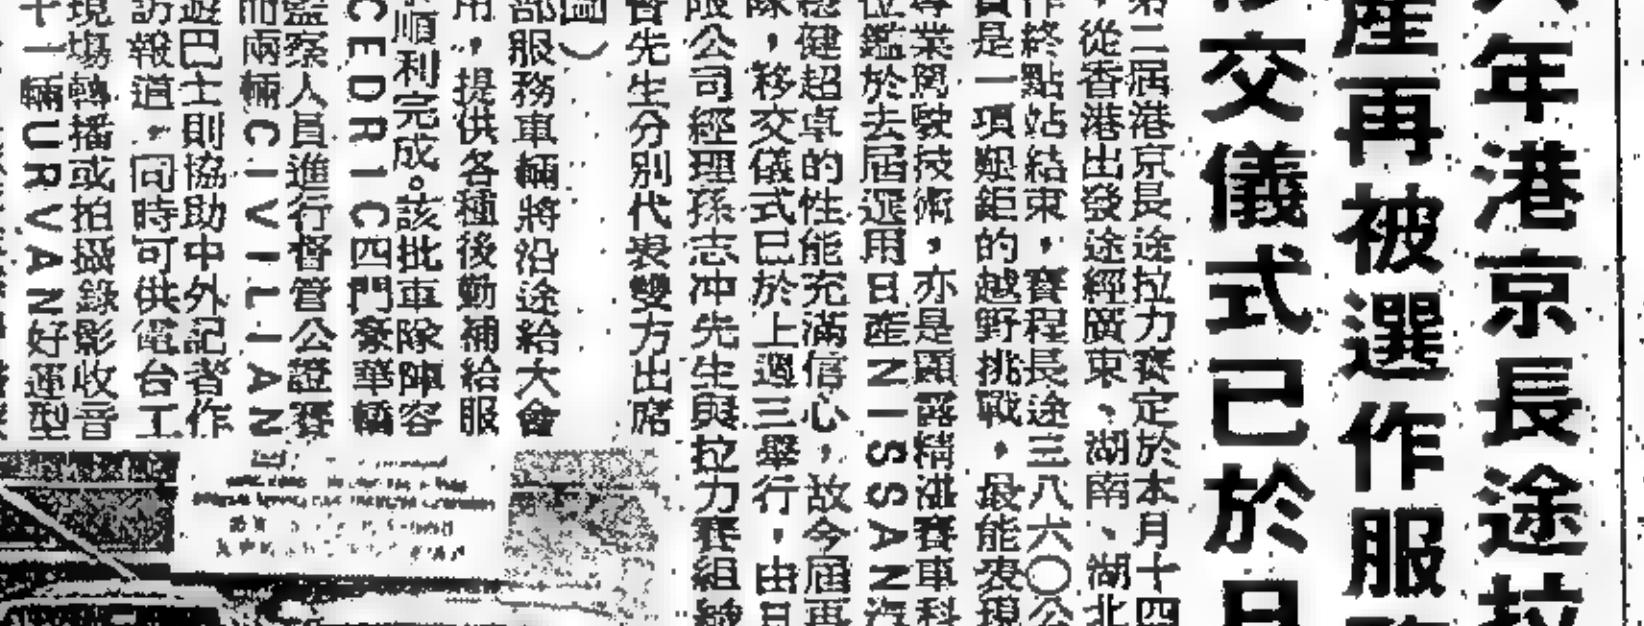 年港京長途拉
產再被選作服
交儀式已於日
第二屆港京長途拉力賽定於本月十四
，從香港出發途經廣東、湖南、湖北
作終點站結束，賽程長途三八六〇公
是一項艱鉅的越野挑戰，最能表現
專業駕駛技術，亦是顯露精湛賽車科
位鑑於去屆選用日產NISSAN汽
穩健超卓的性能充滿信心，故今屆再
隊，移交儀式已於上週三舉行，由日
限公司經理孫志冲先生與拉力賽組織
先生分別代表雙方出席
圖）
部服務車輛將沿途給大會
用，提供各種後勤補給服
順利完成。該批車隊陣容
CEDRIC四門豪華轎
監察人員進行督管公證賽
而兩輛CIVILIAN
遊巴士則協助中外記者作
訪報道，同時可供電台工
現場轉播或拍攝錄影收音
十一輛URVAN好運型